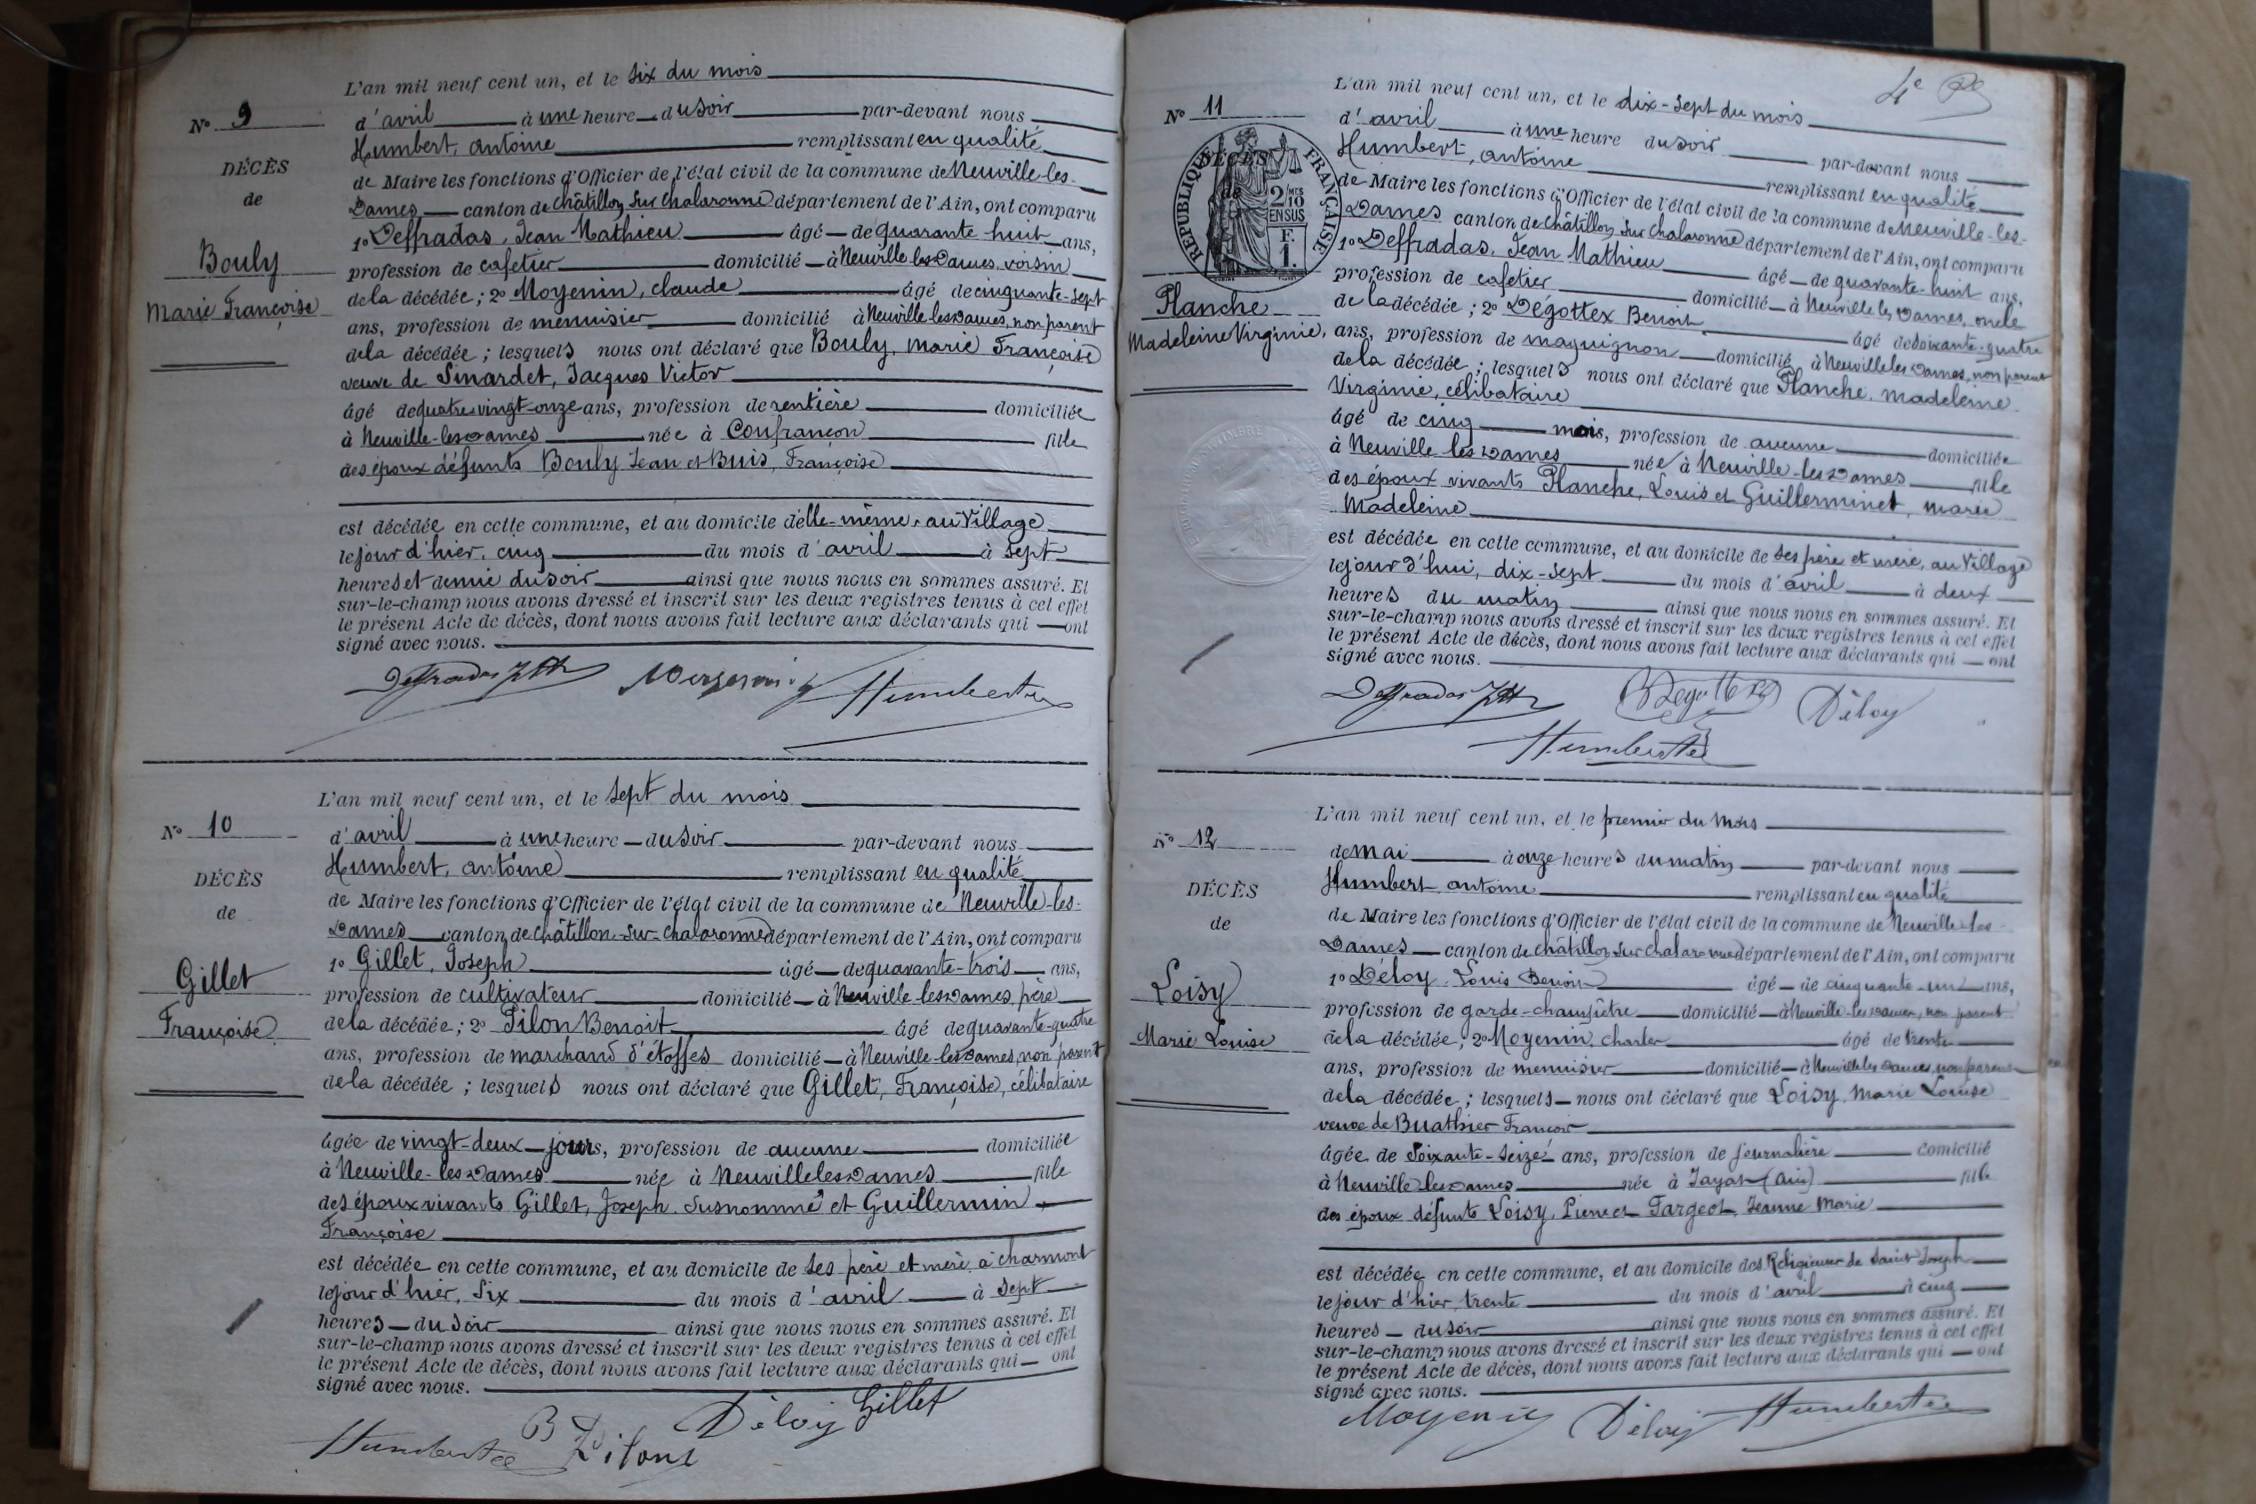 L'an mil neuf cent un, et le six du mois
N° 9
d'avril à une heure du soir par-devant nous
Humbert, antoine remplissant en qualité
DÉCÈS
de Maire les fonctions d'Officier de l'état civil de la commune de Neuville-les-
de
Dames canton de Châtillon sur Chalaronne département de l'Ain, ont comparu
1° Deffradas, Jean Mathieu âgé de quarante huit ans,
Bouly
profession de cafetier domicilié à Neuville les Dames, voisin
Marie Françoise
de la décédée; 2° Moyenin, claude âgé de cinquante-sept
ans, profession de menuisier domicilié à Neuville les Dames, non parent
de la décédée; lesquels nous ont déclaré que Bouly, Marie Françoise
veuve de Sinardet, Jacques Victor
âgé de quatre vingt-onze ans, profession de rentière domiciliée
à Neuville-les-Dames née à Confrançon fille
des époux défunts Bouly Jean et Buis, Françoise
est décédée en cette commune, et au domicile d'elle-même, au Village
le jour d'hier, cinq du mois d'avril à sept
heures et demie du soir ainsi que nous nous en sommes assuré. Et
sur-le-champ nous avons dressé et inscrit sur les deux registres tenus à cet effet
le présent Acte de décès, dont nous avons fait lecture aux déclarants qui ont
signé avec nous.
Deffradas Moyenin Humbert
L'an mil neuf cent un, et le sept du mois
N° 10
d'avril à une heure du soir par-devant nous
Humbert, antoine remplissant en qualité
DÉCÈS
de Maire les fonctions d'Officier de l'état civil de la commune de Neuville-les-
de
Dames canton de châtillon-sur-chalaronne département de l'Ain, ont comparu
1° Gillet, Joseph âgé de quarante-trois ans,
Gillet
profession de cultivateur domicilié à Neuville les Dames, père
Françoise
de la décédée; 2° Pilon Benoit âgé de quarante-quatre
ans, profession de marchand d'étoffes domicilié à Neuville-les-Dames, non parent
de la décédée; lesquels nous ont déclaré que Gillet, Françoise, célibataire
âgée de vingt-deux jours, profession de aucune domiciliée
à Neuville-les-Dames née à Neuville les Dames fille
des époux vivants Gillet, Joseph Susnommé et Guillermin
Françoise
est décédée en cette commune, et au domicile de ses père et mère, à charmont
le jour d'hier, six du mois d'avril à sept
heures du soir ainsi que nous nous en sommes assuré. Et
sur-le-champ nous avons dressé et inscrit sur les deux registres tenus à cet effet
le présent Acte de décès, dont nous avons fait lecture aux déclarants qui ont
signé avec nous.
Humbert B Pilon Déloy Gillet
4e
L'an mil neuf cent un, et le dix-sept du mois
N° 11
d'avril à une heure du soir par-devant nous
Humbert, antoine remplissant en qualité
DÉCÈS
de
RÉPUBLIQUE FRANÇAISE
2 MES
10
EN SUS
F.
1.
de Maire les fonctions d'Officier de l'état civil de la commune de Neuville-les-
Dames canton de châtillon sur Chalaronne département de l'Ain, ont comparu
1° Deffradas, Jean Mathieu âgé de quarante-huit ans,
profession de cafetier domicilié à Neuville les Dames, oncle
Planche
de la décédée; 2° Dégottex Benoit âgé de soixante-quatre
Madeleine Virginie,
ans, profession de maquignon domicilié à Neuville les Dames, non parent
de la décédée; lesquels nous ont déclaré que Planche, madeleine
Virginie, célibataire
âgé de cinq mois, profession de aucune domiciliée
à Neuville les Dames née à Neuville-les-Dames fille
des époux vivants Planche, Louis et Guillerminet, marie
Madeleine
est décédée en cette commune, et au domicile de ses père et mère, au Village
le jour d'hui, dix-sept du mois d'avril à deux
heures du matin ainsi que nous nous en sommes assuré. Et
sur-le-champ nous avons dressé et inscrit sur les deux registres tenus à cet effet
le présent Acte de décès, dont nous avons fait lecture aux déclarants qui ont
signé avec nous.
Deffradas B Degottex Déloy
Humbert
L'an mil neuf cent un, et le premier du mois
N° 12
de mai à onze heures du matin par-devant nous
Humbert, antoine remplissant en qualité
DÉCÈS
de Maire les fonctions d'Officier de l'état civil de la commune de Neuville-les-
de
Dames canton de châtillon sur chalaronne département de l'Ain, ont comparu
1° Déloy, Louis Benoit âgé de cinquante-un ans,
Loisy
profession de garde-champêtre domicilié à Neuville-les-Dames, non parent
Marie Louise
de la décédée; 2° Moyenin, charles âgé de trente
ans, profession de menuisier domicilié à Neuville les Dames, non parent
de la décédée; lesquels nous ont déclaré que Loisy, Marie Louise
veuve de Buathier François
âgée de soixante-seize ans, profession de journalière domicilié
à Neuville les Dames née à Jayat (Ain) fille
des époux défunts Loisy, Pierre et Fargeot, Jeanne Marie
est décédée en cette commune, et au domicile des Religieuses de Saint Joseph
le jour d'hier, trente du mois d'avril à cinq
heures du soir ainsi que nous nous en sommes assuré. Et
sur-le-champ nous avons dressé et inscrit sur les deux registres tenus à cet effet
le présent Acte de décès, dont nous avons fait lecture aux déclarants qui ont
signé avec nous.
Moyenin Déloy Humbert